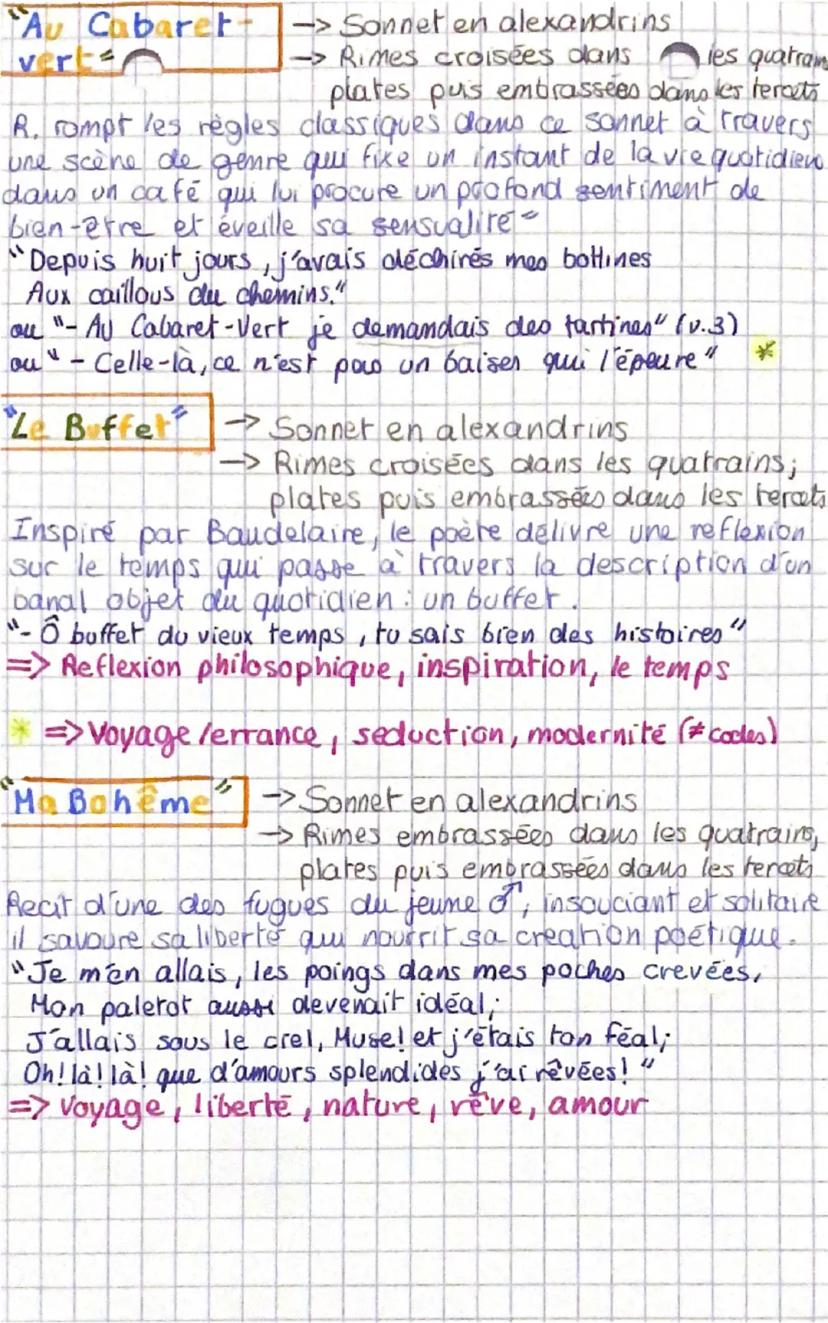 "Au Cabaret-
vert"
→ Sonnet en alexandrins
→ Rimes croisées dans les quatrains
plates puis embrassées dans les tercets
R. rompt les règles classiques dans ce sonnet à travers
une scène de genre qui fixe un instant de la vie quotidien
dans un café qui lui procure un profond sentiment de
bien-être et éveille sa sensualité
"Depuis huit jours, j'avais déchirés mes bottines
Aux caillous du chemins."
ou "- Au Cabaret-Vert je demandais des tartines" (v.3)
ou "- Celle-là, ce n'est pas un baiser qui l'épeure" *
"Le Buffet"
→ Sonnet en alexandrins
→ Rimes croisées dans les quatrains;
plates puis embrassées dans les tercets
Inspiré par Baudelaire, le poète délivre une reflexion
sur le temps qui passe à travers la description d'un
banal objet du quotidien : un buffet.
"- Ô buffet du vieux temps, tu sais bien des histoires"
=> Reflexion philosophique, inspiration, le temps
* => Voyage/errance, séduction, modernité (≠ codes)
"Ma Bohême"
→ Sonnet en alexandrins
→ Rimes embrassées dans les quatrains,
plates puis embrassées dans les tercets
Récit d'une des fugues du jeune ♂, insouciant et solitaire
il savoure sa liberté qui nourrit sa création poétique.
"Je m'en allais, les poings dans mes poches crevées,
Mon paletot aussi devenait idéal;
J'allais sous le ciel, Muse! et j'étais ton féal;
Oh! là! là! que d'amours splendides j'ai rêvées!"
=> Voyage, liberté, nature, rêve, amour